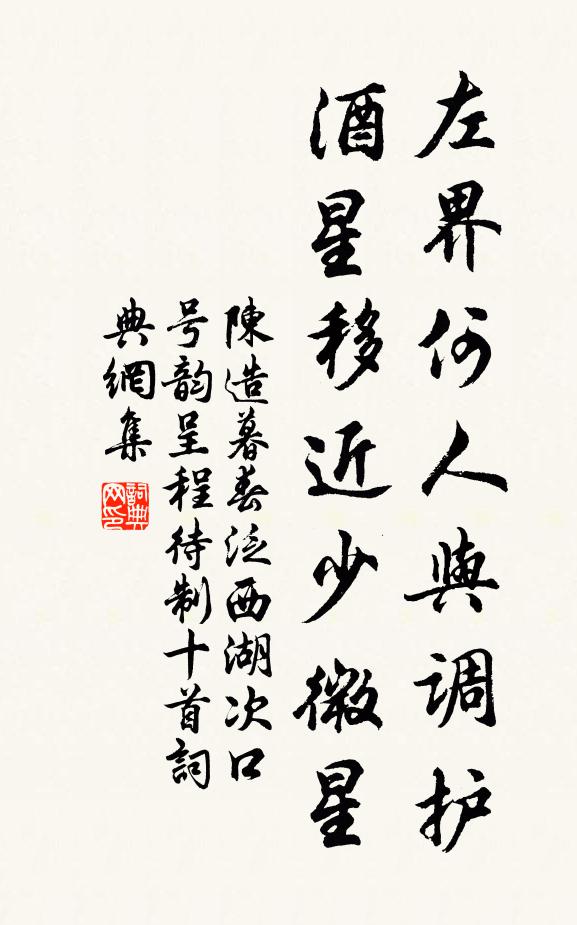 左界何人與调护
酒星移近少微星
陳造暮春泛西湖次口
号韵呈程待制十首詞
典網集
詞典
网印